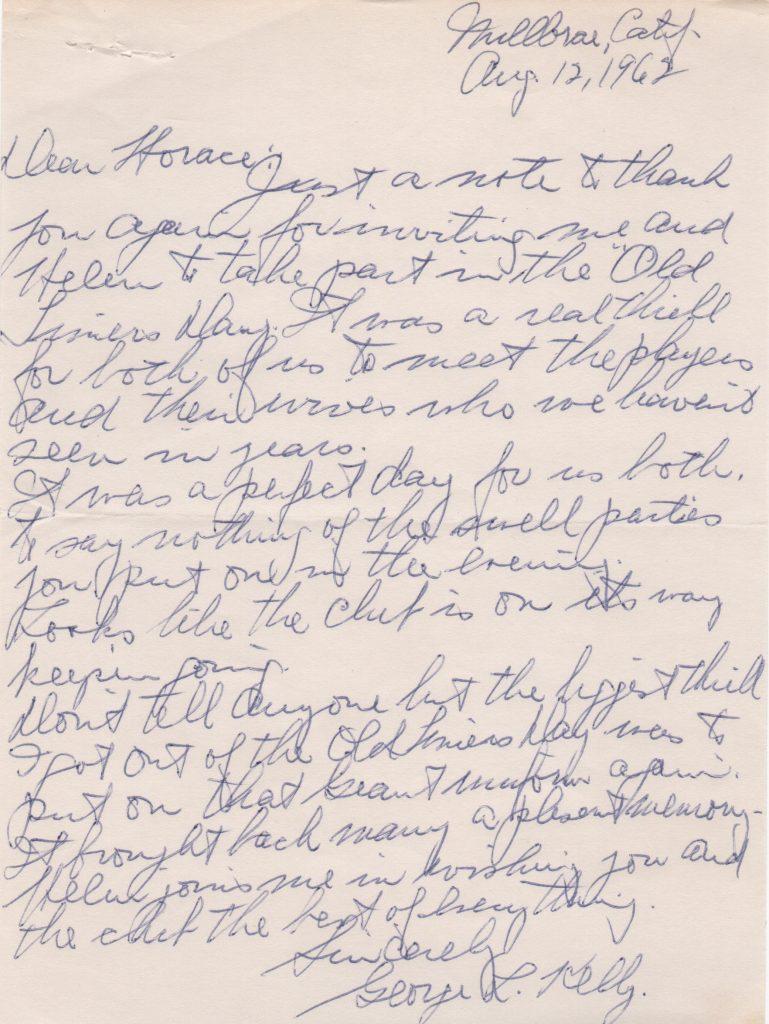 Millbrae, Calif.
Aug. 12, 1962
Dear Horace;
Just a note to thank
you again for inviting me and
Helen to take part in the "Old
Timers Day. It was a real thrill
for both of us to meet the players
and their wives who we haven't
seen in years.
It was a perfect day for us both.
to say nothing of the swell parties
you put one in the evening.
Looks like the club is on its way
keep in going.
Don't tell anyone but the biggest thrill
I got out of the Old Timers Day was to
put on that Geant uniform again.
It brought back many a plesent memory.
Helen joins me in wishing you and
the club the best of everything.
Sincerely
George L. Kelly.